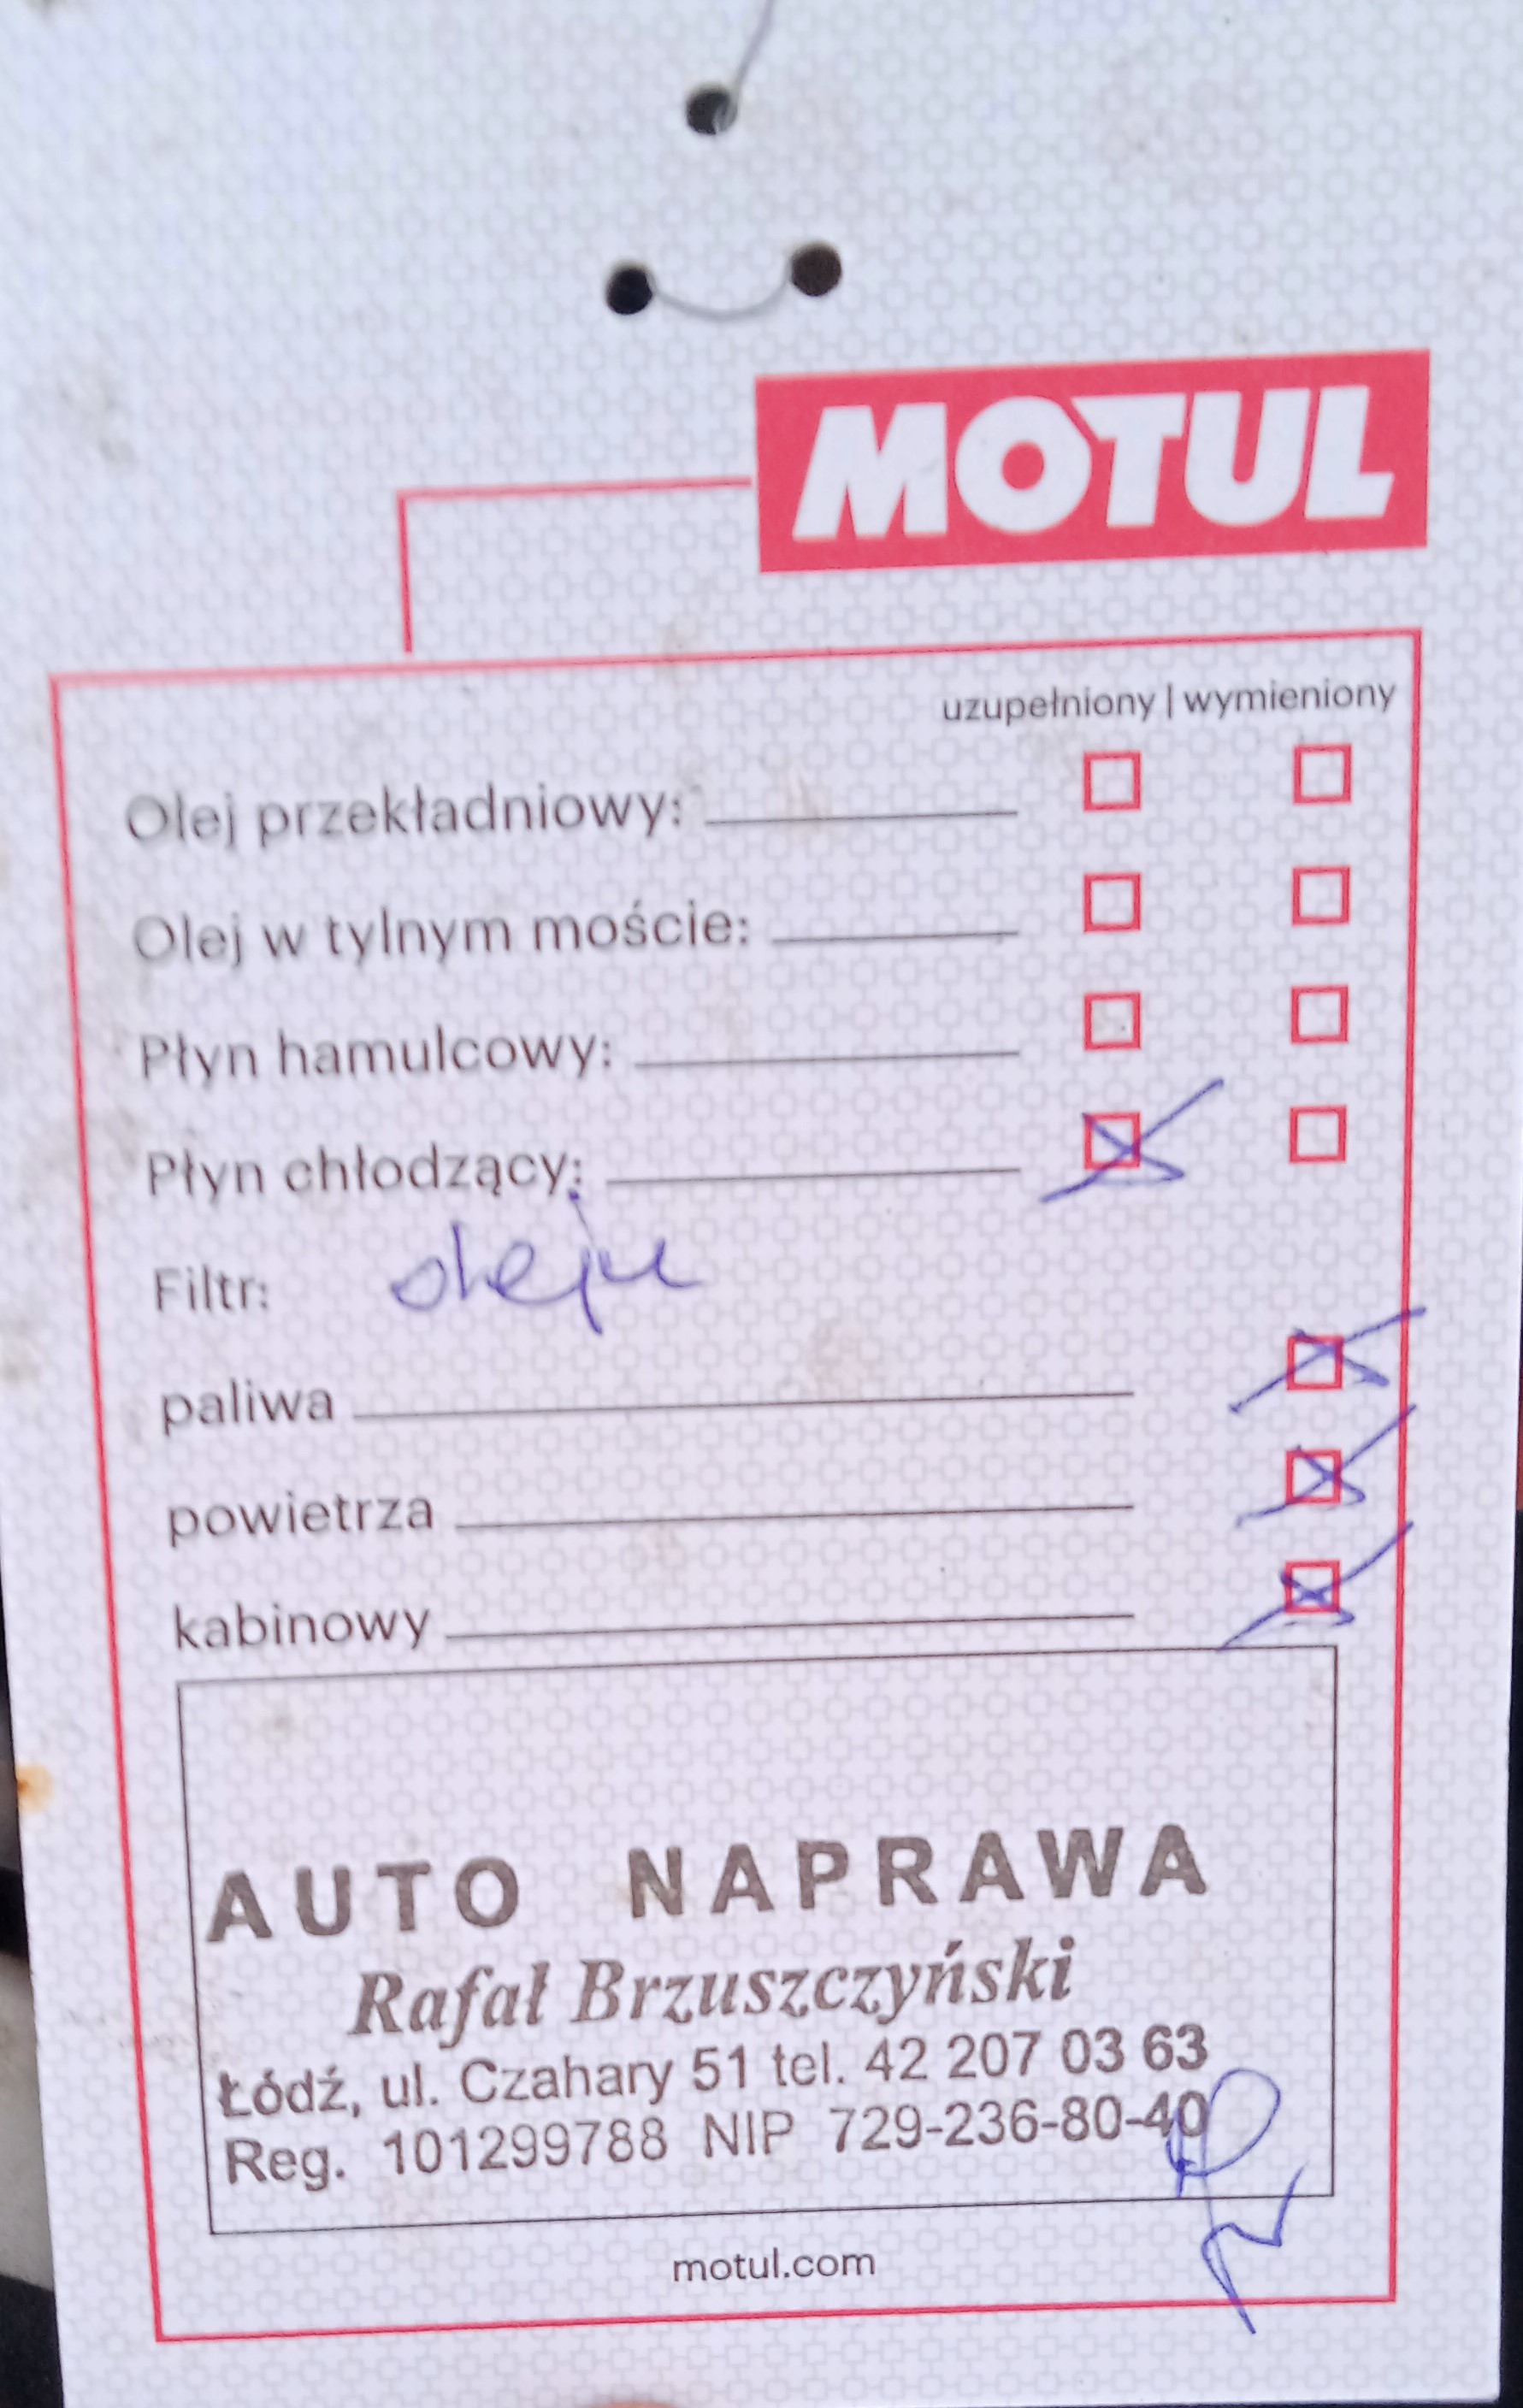 MOTUL
uzupełniony | wymieniony
Olej przekładniowy:
Olej w tylnym moście:
Płyn hamulcowy:
Płyn chłodzący:
Filtr: oleju
paliwa
powietrza
kabinowy
AUTO NAPRAWA
Rafał Brzuszczyński
Łódź, ul. Czahary 51 tel. 42 207 03 63
Reg. 101299788 NIP 729-236-80-40
motul.com